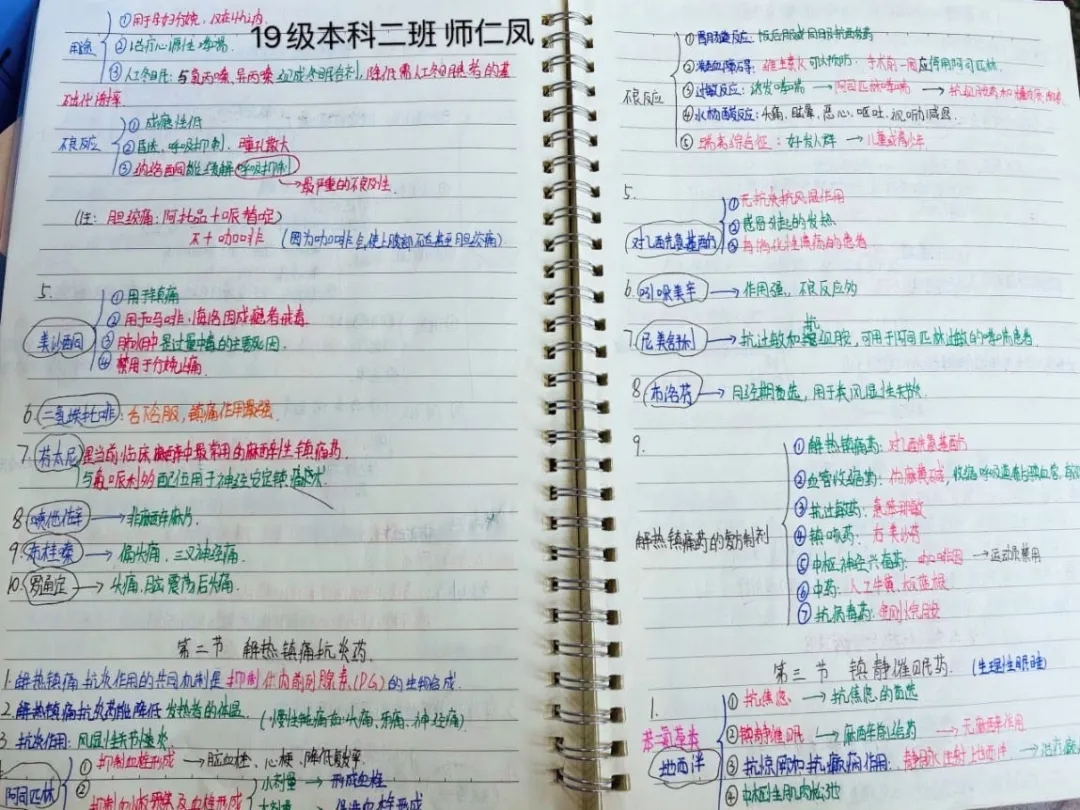 19级本科二班 师仁凤
用途
①用于孕妇分娩，仅在4h内
②治疗心源性哮喘
③人工冬眠：与氯丙嗪、异丙嗪组成冬眠合剂，降低需人工冬眠患者的基
础代谢率
不良反应
①成瘾性低
②呼吸抑制，瞳孔散大
③纳洛酮能缓解呼吸抑制
→最严重的不良反应
(注：胆绞痛：阿托品+哌替啶)
不+吗啡
5.
美沙酮
①用于镇痛
②用于吗啡、海洛因成瘾者戒毒
③肺水肿是过量中毒的主要死因.
④禁用于分娩止痛
6.二氢埃托啡：舌下含服，镇痛作用最强.
7.芬太尼 是当前临床麻醉中最常用的麻醉性镇痛药
与氟哌利多配伍用于神经安定镇痛术
8.喷他佐辛→非麻醉麻片.
9.布桂嗪→偏头痛、三叉神经痛.
10.罗通定→头痛、脑震荡后头痛.
第二节 解热镇痛抗炎药.
1.解热镇痛抗炎作用的共同机制是抑制体内前列腺素(PG)的生物合成.
2.解热镇痛抗炎药能降低发热者的体温. (慢性钝痛如头痛、牙痛、神经痛)
3.抗炎作用：风湿性关节炎.
阿司匹林
①抑制血栓形成→脑血栓、心梗、降低致残率.
②抑制血小板聚集及血栓形成
小剂量→形成血栓
大剂量→促进血栓形成
不良反应
①胃肠道反应：饭后服或同服抗酸药
②凝血障碍：维生素K可以预防；手术前一周应停用阿司匹林.
③过敏反应：诱发哮喘→阿司匹林哮喘→
④水杨酸反应：头痛、眩晕、恶心、呕吐、视听力减退.
⑤瑞夷综合征：好发人群→儿童或青少年.
5.
对乙酰氨基酚
①无抗炎抗风湿作用
②感冒引起的发热
③有消化性溃疡的患者
6.吲哚美辛→作用强，不良反应多
7.尼美舒利→抗过敏和抗组胺，可用于阿司匹林过敏的哮喘患者.
8.布洛芬→月经期首选，用于类风湿性关节炎.
9.
解热镇痛药的复方制剂
①解热镇痛药：对乙酰氨基酚
②血管收缩药：伪麻黄碱，收缩呼吸道黏膜血管
③抗过敏药：氯苯那敏
④镇咳药：右美沙芬
⑤中枢神经兴奋药：咖啡因→运动员禁用
⑥中药：人工牛黄、板蓝根
⑦抗病毒药：金刚烷胺
第三节 镇静催眠药. (生理性睡眠)
1.
苯二氮䓬类
地西泮
①抗焦虑→抗焦虑的首选
②镇静催眠→麻醉前给药→无麻醉作用
③抗惊厥和抗癫痫作用：静脉注射地西泮→治疗癫
④中枢性肌肉松弛